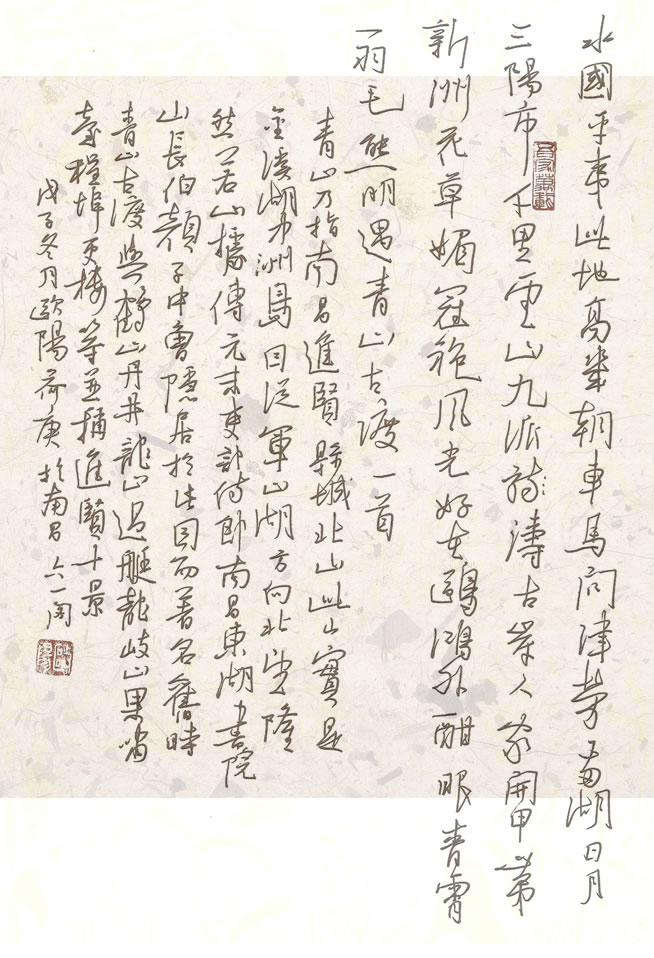 水國平夷此地高幾朝車馬問津勞兩湖日月
三陽市千里雲山九派濤古岸人家開甲第
新洲花草媚冠袍風光好在鷗鴻外酣眼青霄
一羽毛熊明遇青山古渡一首
青山乃指南昌進賢縣城北山此山實是
金溪湖中洲島因從軍山湖方向北望隆
然若山據傳元末吏部侍郎南昌東湖書院
山長伯顏子中曾隱居於此因而著名舊時
青山古渡與鶴山丹井龍山過艇龍岐山果
臺程埠更樓等並稱進賢十景
戊子冬月歐陽荷庚於南昌六一閣